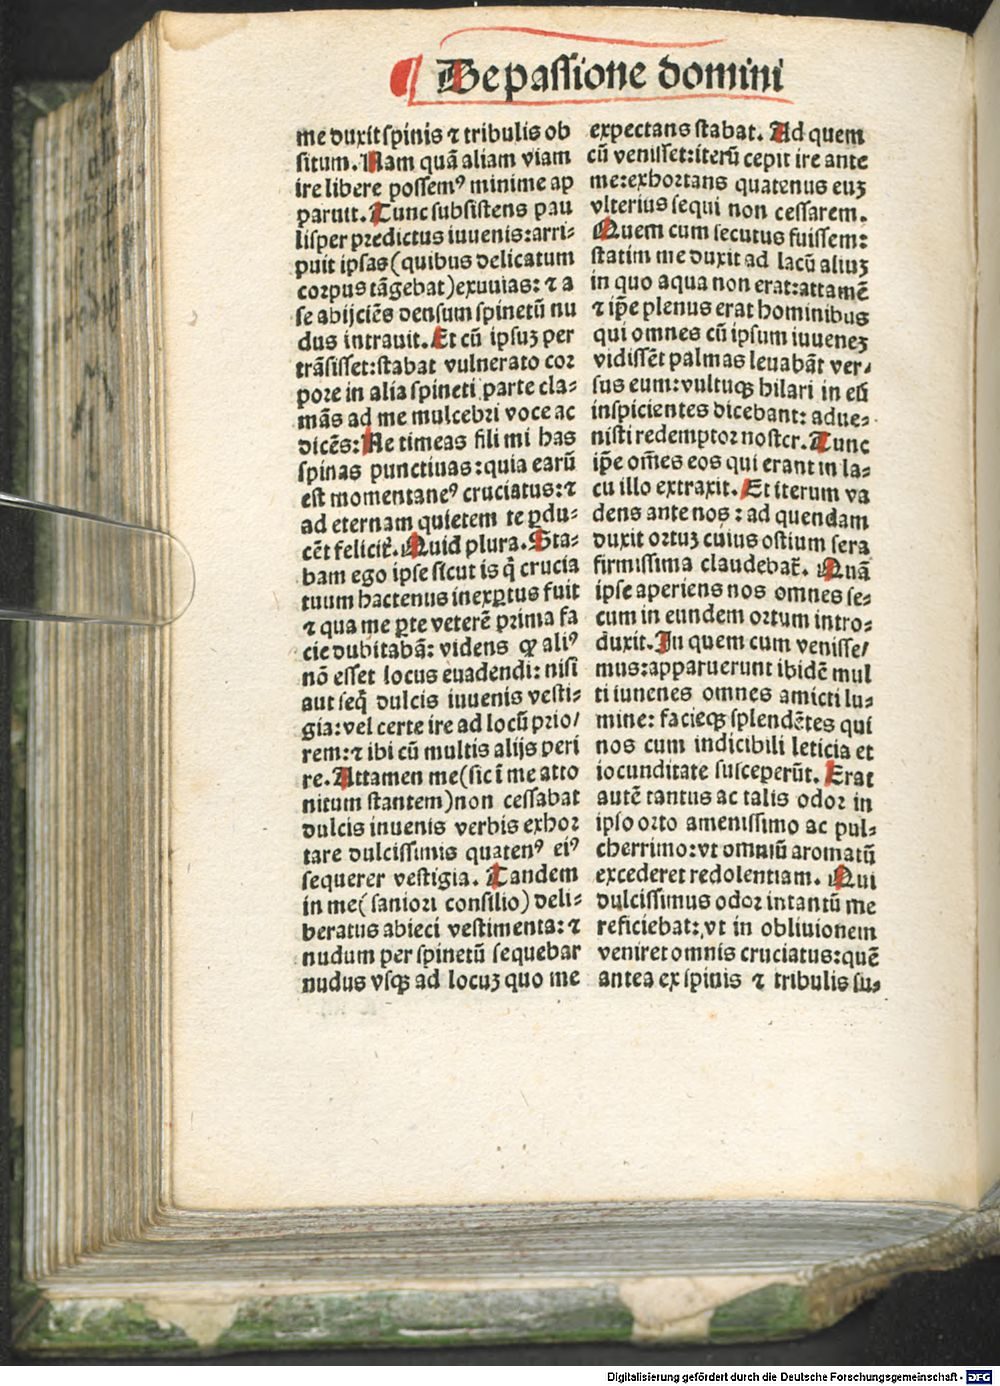 De passione domini
me duxit spinis ⁊ tribulis ob
situm. Nam quā aliam viam
ire libere possemꝰ minime ap
paruit. Tunc subsistens pau
lisper predictus iuuenis: arri⸗
puit ipsas (quibus delicatum
corpus tāgebat) exuuias: ⁊ a
se abijciēs densum spinetū nu
dus intrauit. Et cū ipsuꝫ per
trāsisset: stabat vulnerato cor
pore in alia spineti parte cla⸗
mās ad me mulcebri voce ac
dicēs: Ne timeas fili mi has
spinas punctiuas: quia earū
est momentaneꝰ cruciatus: ⁊
ad eternam quietem te ꝑdu⸗
cēt felicit᷑. Quid plura. Sta⸗
bam ego ipse sicut is q̄ crucia
tuum hactenus inexꝑtus fuit
⁊ qua me ꝑte veterē prima fa
cie dubitabā: videns ꝙ aliꝰ
nō esset locus euadendi: nisi
aut seq̄ dulcis iuuenis vesti⸗
gia: vel certe ire ad locū prio/
rem: ⁊ ibi cū multis alijs peri
re. Attamen me (sic ī me atto
nitum stantem) non cessabat
dulcis iuuenis verbis exhor
tare dulcissimis quatenꝰ eiꝰ
sequerer vestigia. Tandem
in me (saniori consilio) deli⸗
beratus abieci vestimenta: ⁊
nudum per spinetū sequebar
nudus vsqꝫ ad locuꝫ quo me
expectans stabat. Ad quem
cū venisset: iterū cepit ire ante
me: exhortans quatenus euꝫ
vlterius sequi non cessarem.
Quem cum secutus fuissem:
statim me duxit ad lacū aliuꝫ
in quo aqua non erat: attamē
⁊ ip̄e plenus erat hominibus
qui omnes cū ipsum iuueneꝫ
vidissēt palmas leuabāt ver/
sus eum: vultuqꝫ hilari in eū
inspicientes dicebant: adue⸗
nisti redemptor noster. Tunc
ip̄e om̄es eos qui erant in la⸗
cu illo extraxit. Et iterum va
dens ante nos: ad quendam
duxit ortuꝫ cuius ostium sera
firmissima claudebat᷑. Quā
ipse aperiens nos omnes se⸗
cum in eundem ortum intro⸗
duxit. In quem cum venisse/
mus: apparuerunt ibidē mul
ti iuuenes omnes amicti lu⸗
mine: facieqꝫ splendētes qui
nos cum indicibili leticia et
iocunditate susceperūt. Erat
autē tantus ac talis odor in
ipso orto amenissimo ac pul⸗
cherrimo: vt omniū aromatū
excederet redolentiam. Qui
dulcissimus odor intantū me
reficiebat: vt in obliuionem
veniret omnis cruciatus: quē
antea ex spinis ⁊ tribulis su⸗
Digitalisierung gefördert durch die Deutsche Forschungsgemeinschaft - DFG